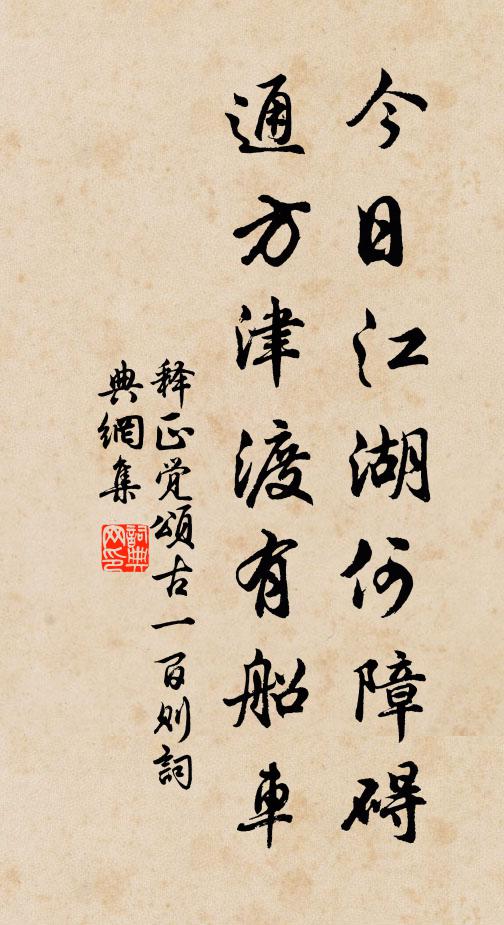 今日江湖何障碍
通方津渡有船車
释正觉頌古一百则詞
典網集
詞典
网印